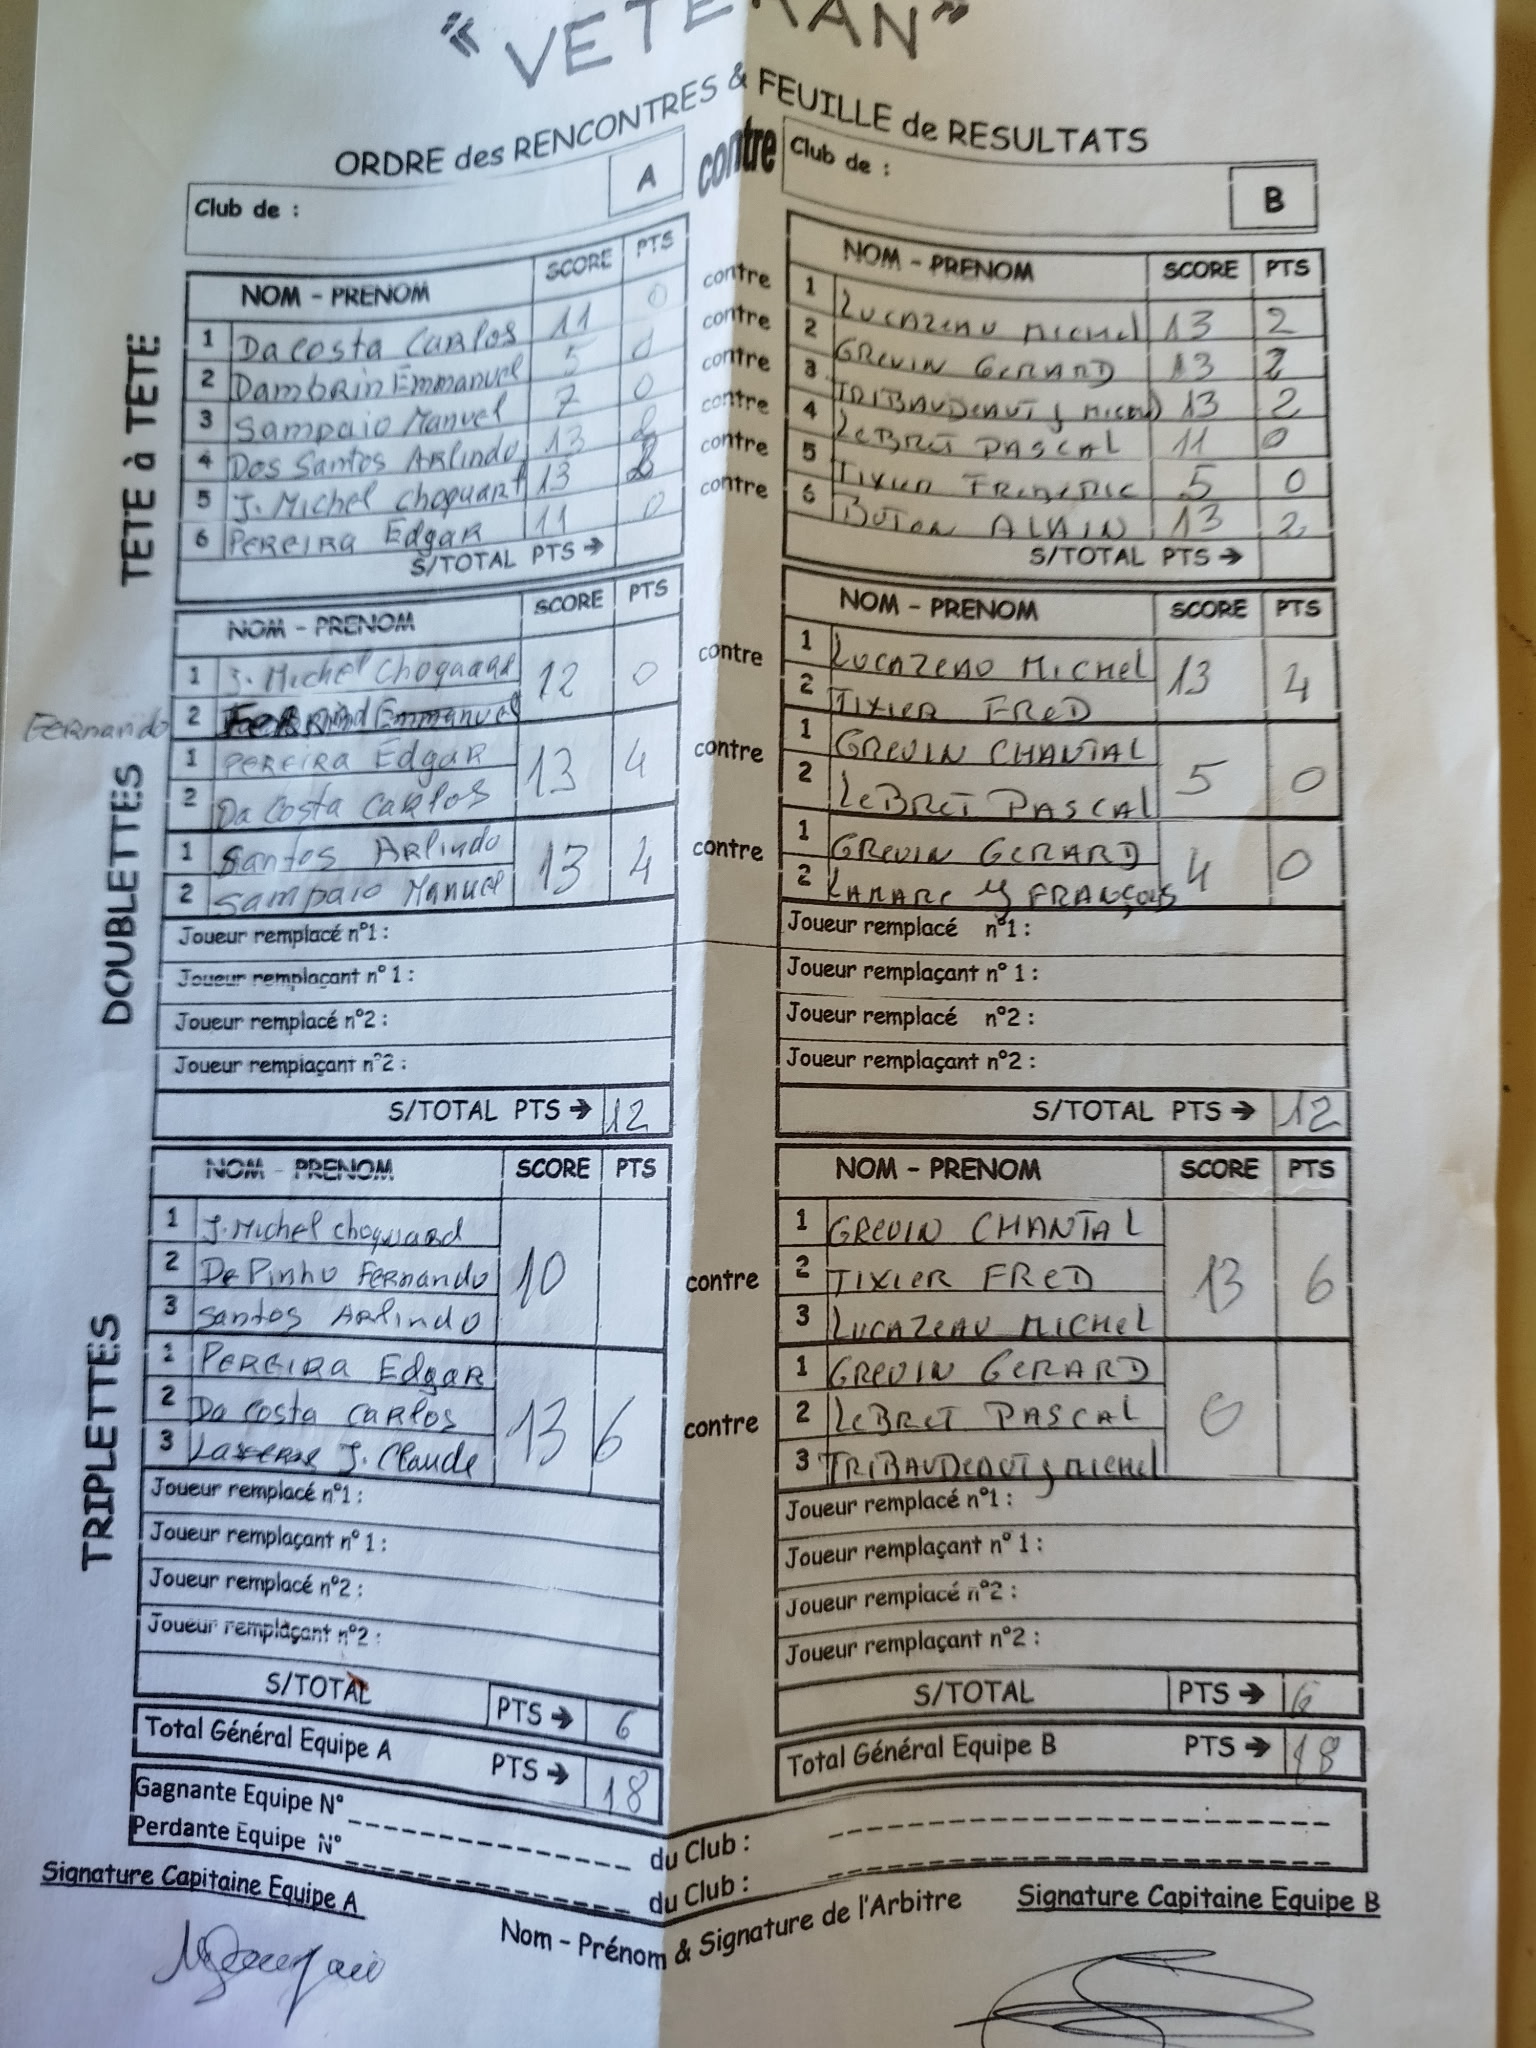 "VETERAN"
ORDRE des RENCONTRES & FEUILLE de RESULTATS
Club de : A contre Club de : B
TETE à TETE
NOM - PRENOM SCORE PTS NOM - PRENOM SCORE PTS
1 Da Costa Carlos 11 0 contre 1 LUCAZEAU MICHEL 13 2
2 Dambrin Emmanuel 5 0 contre 2 GREVIN GERARD 13 2
3 Sampaio Manuel 7 0 contre 3 TRIBAUDEAUT J MICHEL 13 2
4 Dos Santos Arlindo 13 2 contre 4 LEBRET PASCAL 11 0
5 J. Michel Choquart 13 2 contre 5 TIXIER FREDERIC 5 0
6 PEREIRA Edgar 11 0 contre 6 ALAIN 13 2
S/TOTAL PTS → S/TOTAL PTS →
DOUBLETTES
NOM - PRENOM SCORE PTS NOM - PRENOM SCORE PTS
1 J. Michel Choquard 12 0 contre 1 LUCAZEAU MICHEL 13 4
Fernando 2 Emmanuel 2 TIXIER FRED
1 PEREIRA Edgar 13 4 contre 1 GREVIN CHANTAL 5 0
2 Da Costa Carlos 2 LEBRET PASCAL
1 Santos Arlindo 13 4 contre 1 GREVIN GERARD 4 0
2 Sampaio Manuel 2 FRANÇOIS
Joueur remplacé n°1 : Joueur remplacé n°1 :
Joueur remplaçant n° 1 : Joueur remplaçant n° 1 :
Joueur remplacé n°2 : Joueur remplacé n°2 :
Joueur remplaçant n°2 : Joueur remplaçant n°2 :
S/TOTAL PTS → 12 S/TOTAL PTS → 12
TRIPLETTES
NOM - PRENOM SCORE PTS NOM - PRENOM SCORE PTS
1 J. Michel Choquard 1 GREVIN CHANTAL
2 De Pinho Fernando 10 contre 2 TIXIER FRED 13 6
3 Santos Arlindo 3 LUCAZEAU MICHEL
1 PEREIRA Edgar 1 GREVIN GERARD
2 Da Costa Carlos 13 6 contre 2 LEBRET PASCAL
3 J. Claude 3 TRIBAUDEAUT J MICHEL
Joueur remplacé n°1 : Joueur remplacé n°1 :
Joueur remplaçant n° 1 : Joueur remplaçant n° 1 :
Joueur remplacé n°2 : Joueur remplacé n°2 :
Joueur remplaçant n°2 : Joueur remplaçant n°2 :
S/TOTAL PTS → 6 S/TOTAL PTS → 6
Total Général Equipe A PTS → 18 Total Général Equipe B PTS → 18
Gagnante Equipe N° du Club :
Perdante Equipe N° du Club :
Signature Capitaine Equipe A Nom - Prénom & Signature de l'Arbitre Signature Capitaine Equipe B